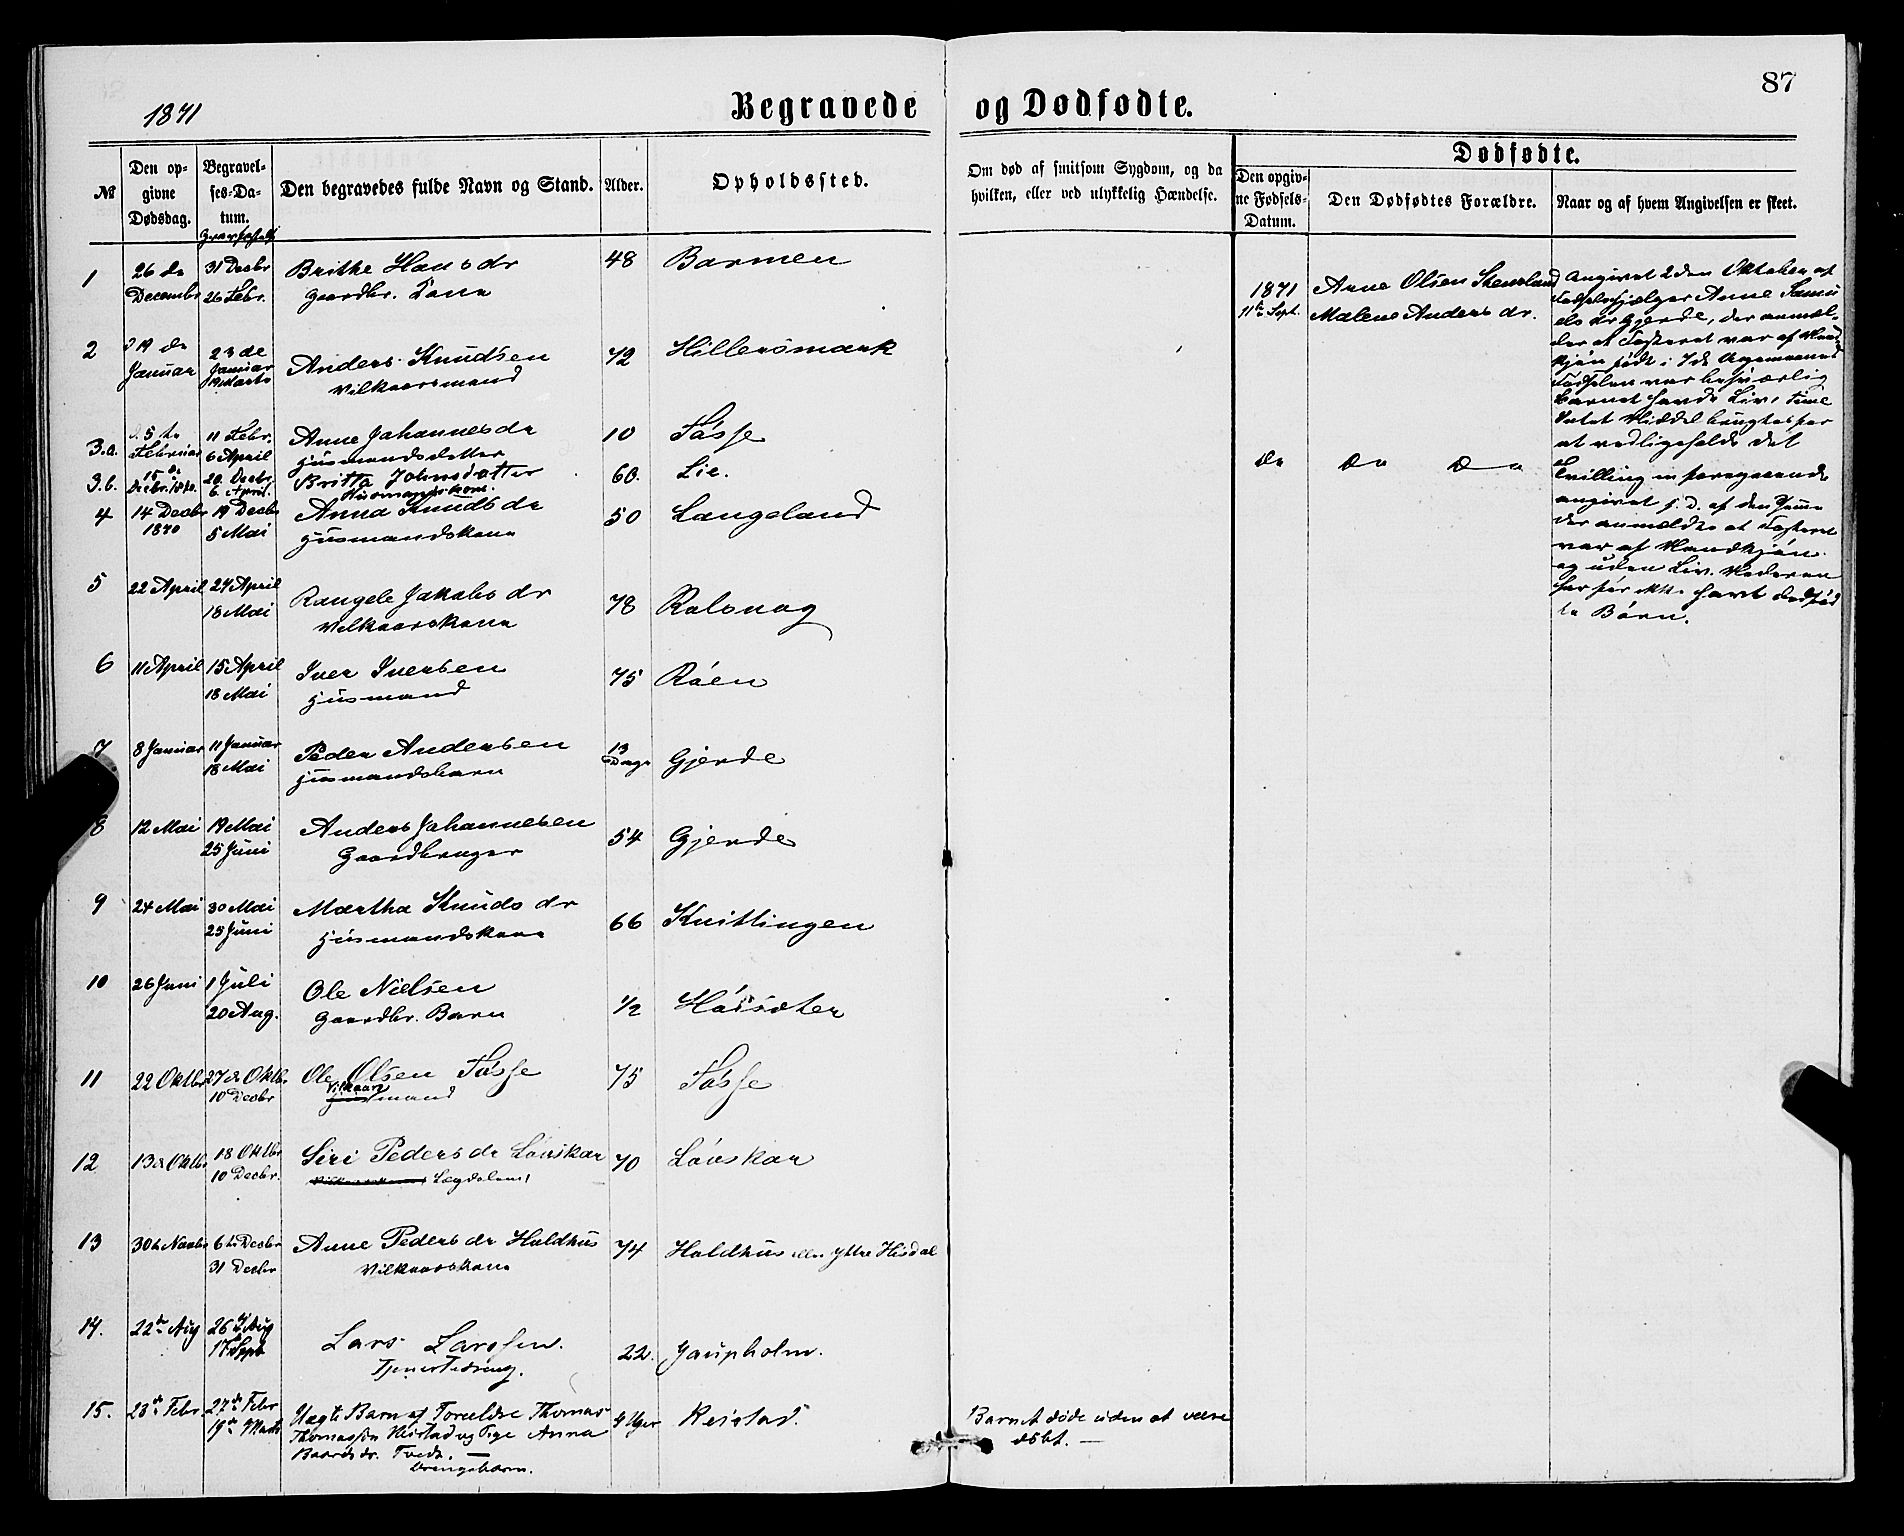 87
1871
Begravede og Dødfødte.
№
Den opgivne Dødsdag.
Begravelses-Datum.
Den begravedes fulde Navn og Stand.
Alder.
Opholdssted.
Om død af smitsom Sygdom, og da hvilken, eller ved ulykkelig Hændelse.
Dødfødte.
Den opgivne Fødsels-Datum.
Den Dødfødtes Forældre.
Naar og af hvem Angivelsen er skeet.
1 26 de 31 Decbr Brithe Hansdr 48 Barmen
Decembr 26 Febr. Gaardbr. Kone
2 19 de 23 de Anders Knudsen 72 Hillersmark
Januar Januar Vilkaarsmand
19 Marts
3.a. 5 te 11 Febr. Anne Johannesdr 10 Fósse
Februar 6 April Husmandsdatter
3.b. 15 de 20 Decbr Britta Johnsdatter 60. Lie.
Decbr. 1870. 6. April. Husmandskone.
4 14 Decbr 19 Decbr Anna Knudsdr 50 Langeland
1870 5 Mai Husmandskone
5 22 April 24 April Rangele Jakobsdr 78
18 Mai Vilkaarskone
6 11 April 15 April Iver Iversen 75 Róen
18 Mai Husmand
7 8 Januar 11 Januar Peder Andersen 13 Dage Gjerde
18 Mai Husmandsbarn
8 12 Mai 19 Mai Anders Johannesen 54 Gjerde
25 Juni Gaardbruger
9 24 Mai 30 Mai Martha Knudsdr 66 Knittingen
25 Juni Husmandskone
10 26 Juni 1 Juli Ole Nielsen 1/2 Hóisæter
20 Aug. Gaardbr. Barn
11 22 Oktbr 27 de Oktbr Ole Olsen Fósse 75 Fósse
10 Decbr Vilkaarsmand
12 13 de Oktbr 18 Oktbr Siri Pedersdr Lóvskar 70 Lóvskar
10 Decbr. Lægdslem
13 30 te Novbr 6 te Decbr Anne Pedersdr Haldhus 74 Haldhus eller Ytre Hisdal
31 Decbr Vilkaarskone
14. 22 de Aug 26 de Aug Lars Larssen. 22. Jaupholm.
17 de Sept Tjenestedreng.
15. 23 de Febr. 27 de Febr Uægte Barn af Forældre Thomas 4 Uger Reistad.
19 de Marts Thomassen Reistad og Pige Anna
Baardsdr. Tvedt. —
Drengebarn.
Barnet døde uden at være
døbt. —
1871 Arne Olsen Stensland
11 te Sept. Malene Andersdr.
Angivet 2den Oktober af
Fødselshjælper Anne Samu
elsdr Gjerde, der anmel-
der at Fosteret var af Mand
kjøn født i 7de
Fødselen var besværlig
Barnet havde Liv 1 Time
Intet Middel brugtes for
at vedligeholde det
Do Do Do Tvilling m foregaaende
angivet s. D. af den samme
der anmeldte at Fosteret
var af Mandkjøn
og uden Liv. Moderen
har før ikke havt dødfød
te Børn.